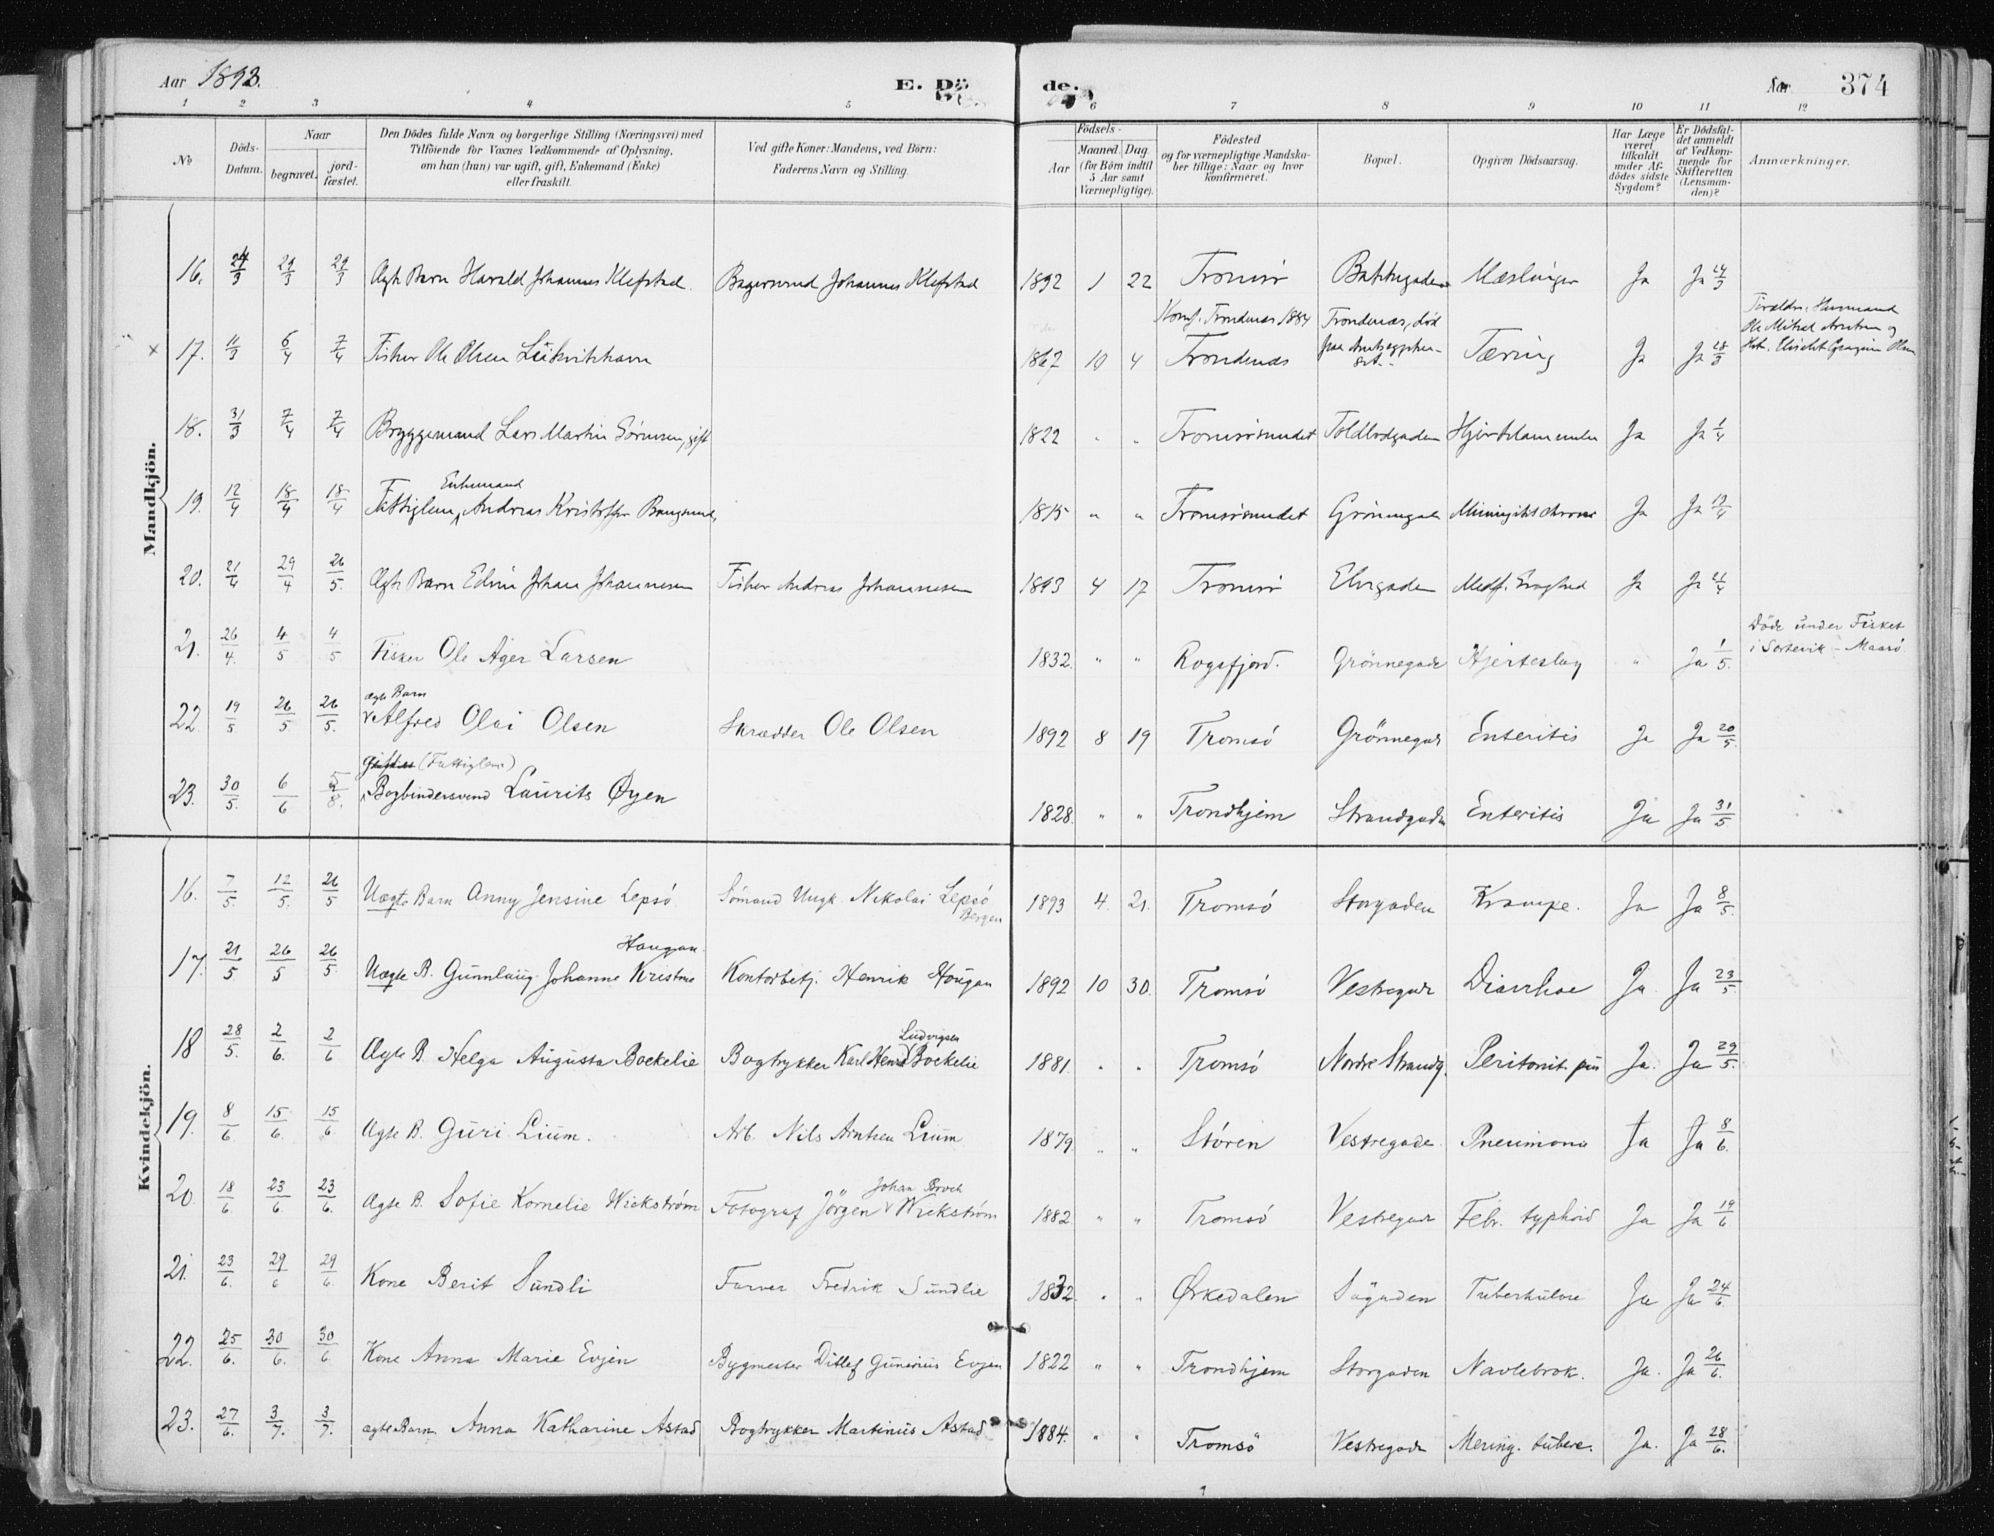 Aar 1893. E. Döde. Aar 374
1 2 3 4 5 6 7 8 9 10 11 12
No
Döds-Datum.
Naar
begravet.
jord-fæstet.
Den Dödes fulde Navn og borgerlige Stilling (Næringsvei) med
Tilföiende for Voxnes Vedkommende af Oplysning,
om han (hun) var ugift, gift, Enkemand (Enke)
eller fraskilt.
Ved gifte Koner: Mandens, ved Börn:
Faderens Navn og Stilling.
Födsels-
Aar
Maaned. Dag.
(for Börn indtil
5 Aar samt
Værnepligtige).
Födested
og for værnepligtige Mandska-
ber tillige: Naar og hvor
konfirmeret.
Bopæl.
Opgiven Dödsaarsag.
Har Læge
været
tilkaldt
under Af-
dödes sidste
Sygdom?
Er Dödsfal-
det anmeldt
af Vedkom-
mende for
Skifteretten
(Lensman-
den)?
Anmærkninger.
Mandkjön.
16. 24/3 29/3 29/3 Ægte Barn Harald Johannes Klefstad. Bagersvend Johannes Klefstad 1892 1 22 Tromsö Bakkegaden Mæslinger Ja Ja 24/3
Konf. Trondenæs 1884 Trondenæs, död
17. 11/3 6/4 7/4 Fisker Ole Olsen 1867 10 4 Trondenæs Tæring Ja Ja 28/3
18. 31/3 7/4 7/4 Bryggemand Lars Martin Sörensen, gift 1822 " " Tromsösundet Toldbodgaden Ja Ja 1/4
Enkemand
19. 12/4 18/4 18/4 Fattiglem, Andreas Kristoffer 1815 " " Tromsösundet Grönnegade Ja Ja 13/4
20. 21/4 29/4 26/5. Ægte Barn Edvin Johan Johannesen Fisker Andreas Johannesen 1893 4 17 Tromsö Elvegaden Medf. Svaghed Ja Ja 21/4
21. 26/4. 4/5 4/5 Fisker Ole Ager Larsen 1832. " " Grönnegade Hjerteslag " Ja 1/5. Döde under Fisket
i Sortevik - Maasö
ægte Barn
22 19/5 26/5 26/5. Alfred Olai Olsen Skrædder Ole Olsen 1892 8 19 Tromsö Grönnegade Enteritis Ja Ja 20/5.
(Fattiglem)
23. 30/5. 6/6 5/8. Bogbindersvend Laurits Øyen 1828. " " Trondhjem Strandgaden Enteritis Ja Ja 31/5
Kvindekjön.
16. 7/5. 12/5. 26/5 Uægte Barn Anny Jensine Lepsö Sömand Ungk. Nikolai Lepsö
Bergen 1893 4. 21. Tromsö Storgaden Krampe. Ja Ja 8/5.
Haugan.
17. 21/5 26/5 26/5. Uægte B. Gunnlaug Johanne Kristine Kontorbetj. Henrik Hougan 1892 10 30. Tromsö Vestregade Diarrhoe Ja. Ja 23/5.
Ludvigsen
18 28/5. 2/6. 2/6 Ægte B. Helga Augusta Boekelie Bogtrykker Karl Henrik Boekelie 1881. " " Tromsö Nordre Strandg. Peritonit. Ja. Ja 29/5.
19. 8/6 15/6. 15/6 Ægte B. Guri Lium. Arb. Nils Arntsen Lium 1879. " " Stören Vestregade Pneumoni Ja Ja 8/6.
Johan Broch
20. 18/6 23/6. 23/6. Ægte B. Sofie Kornelie Wickström Fotograf Jörgen Wickström 1882 " " Tromsö Vestregade Febr. typhoid Ja Ja 19/6
21. 23/6. 29/6 29/6. Kone Berit Sundli Farver Fredrik Sundlie 1832. " " Ørkedalen Sögaden Tuberkulose Ja Ja 24/6.
22. 25/6. 30/6. 30/6 Kone Anna Marie Evjen Bygmester Ditlef Gunerius Evjen 1822 " " Trondhjem Storgaden Navlebrok. Ja. Ja 26/6.
23. 27/6. 3/7. 3/7. ægte Barn Anna Katharine Astad Bogtrykker Martinius Astad 1884. " " Tromsö Vestregade Mening. tuberc. Ja. Ja 28/6.